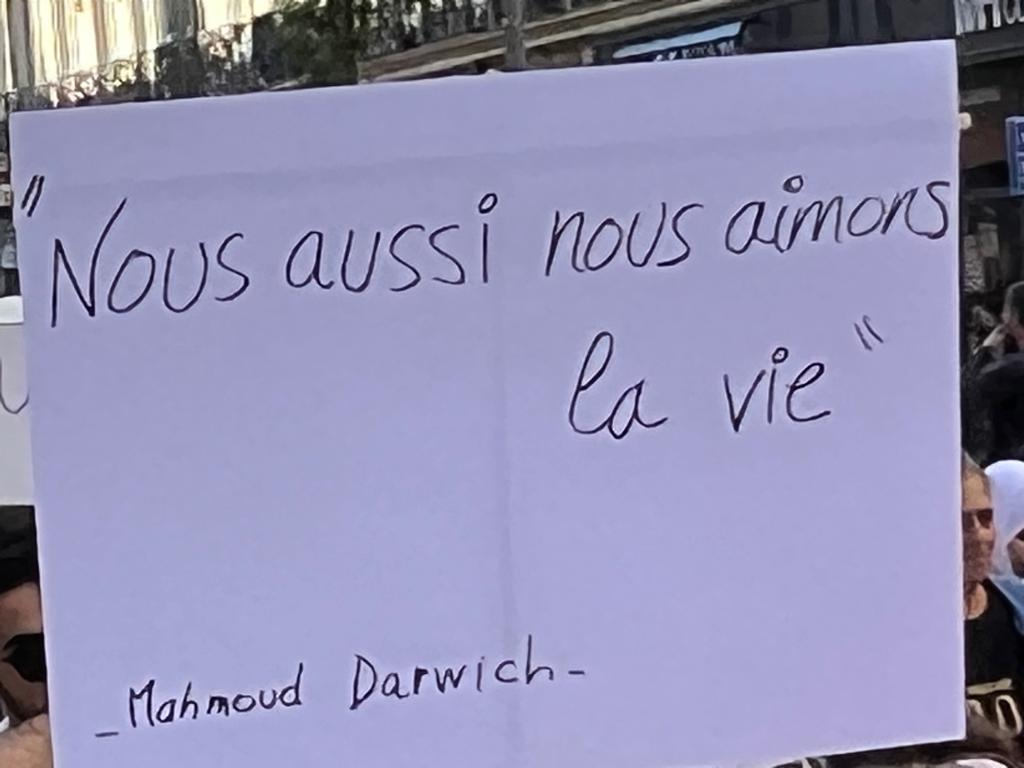 "Nous aussi nous aimons
la vie"
_Mahmoud Darwich-